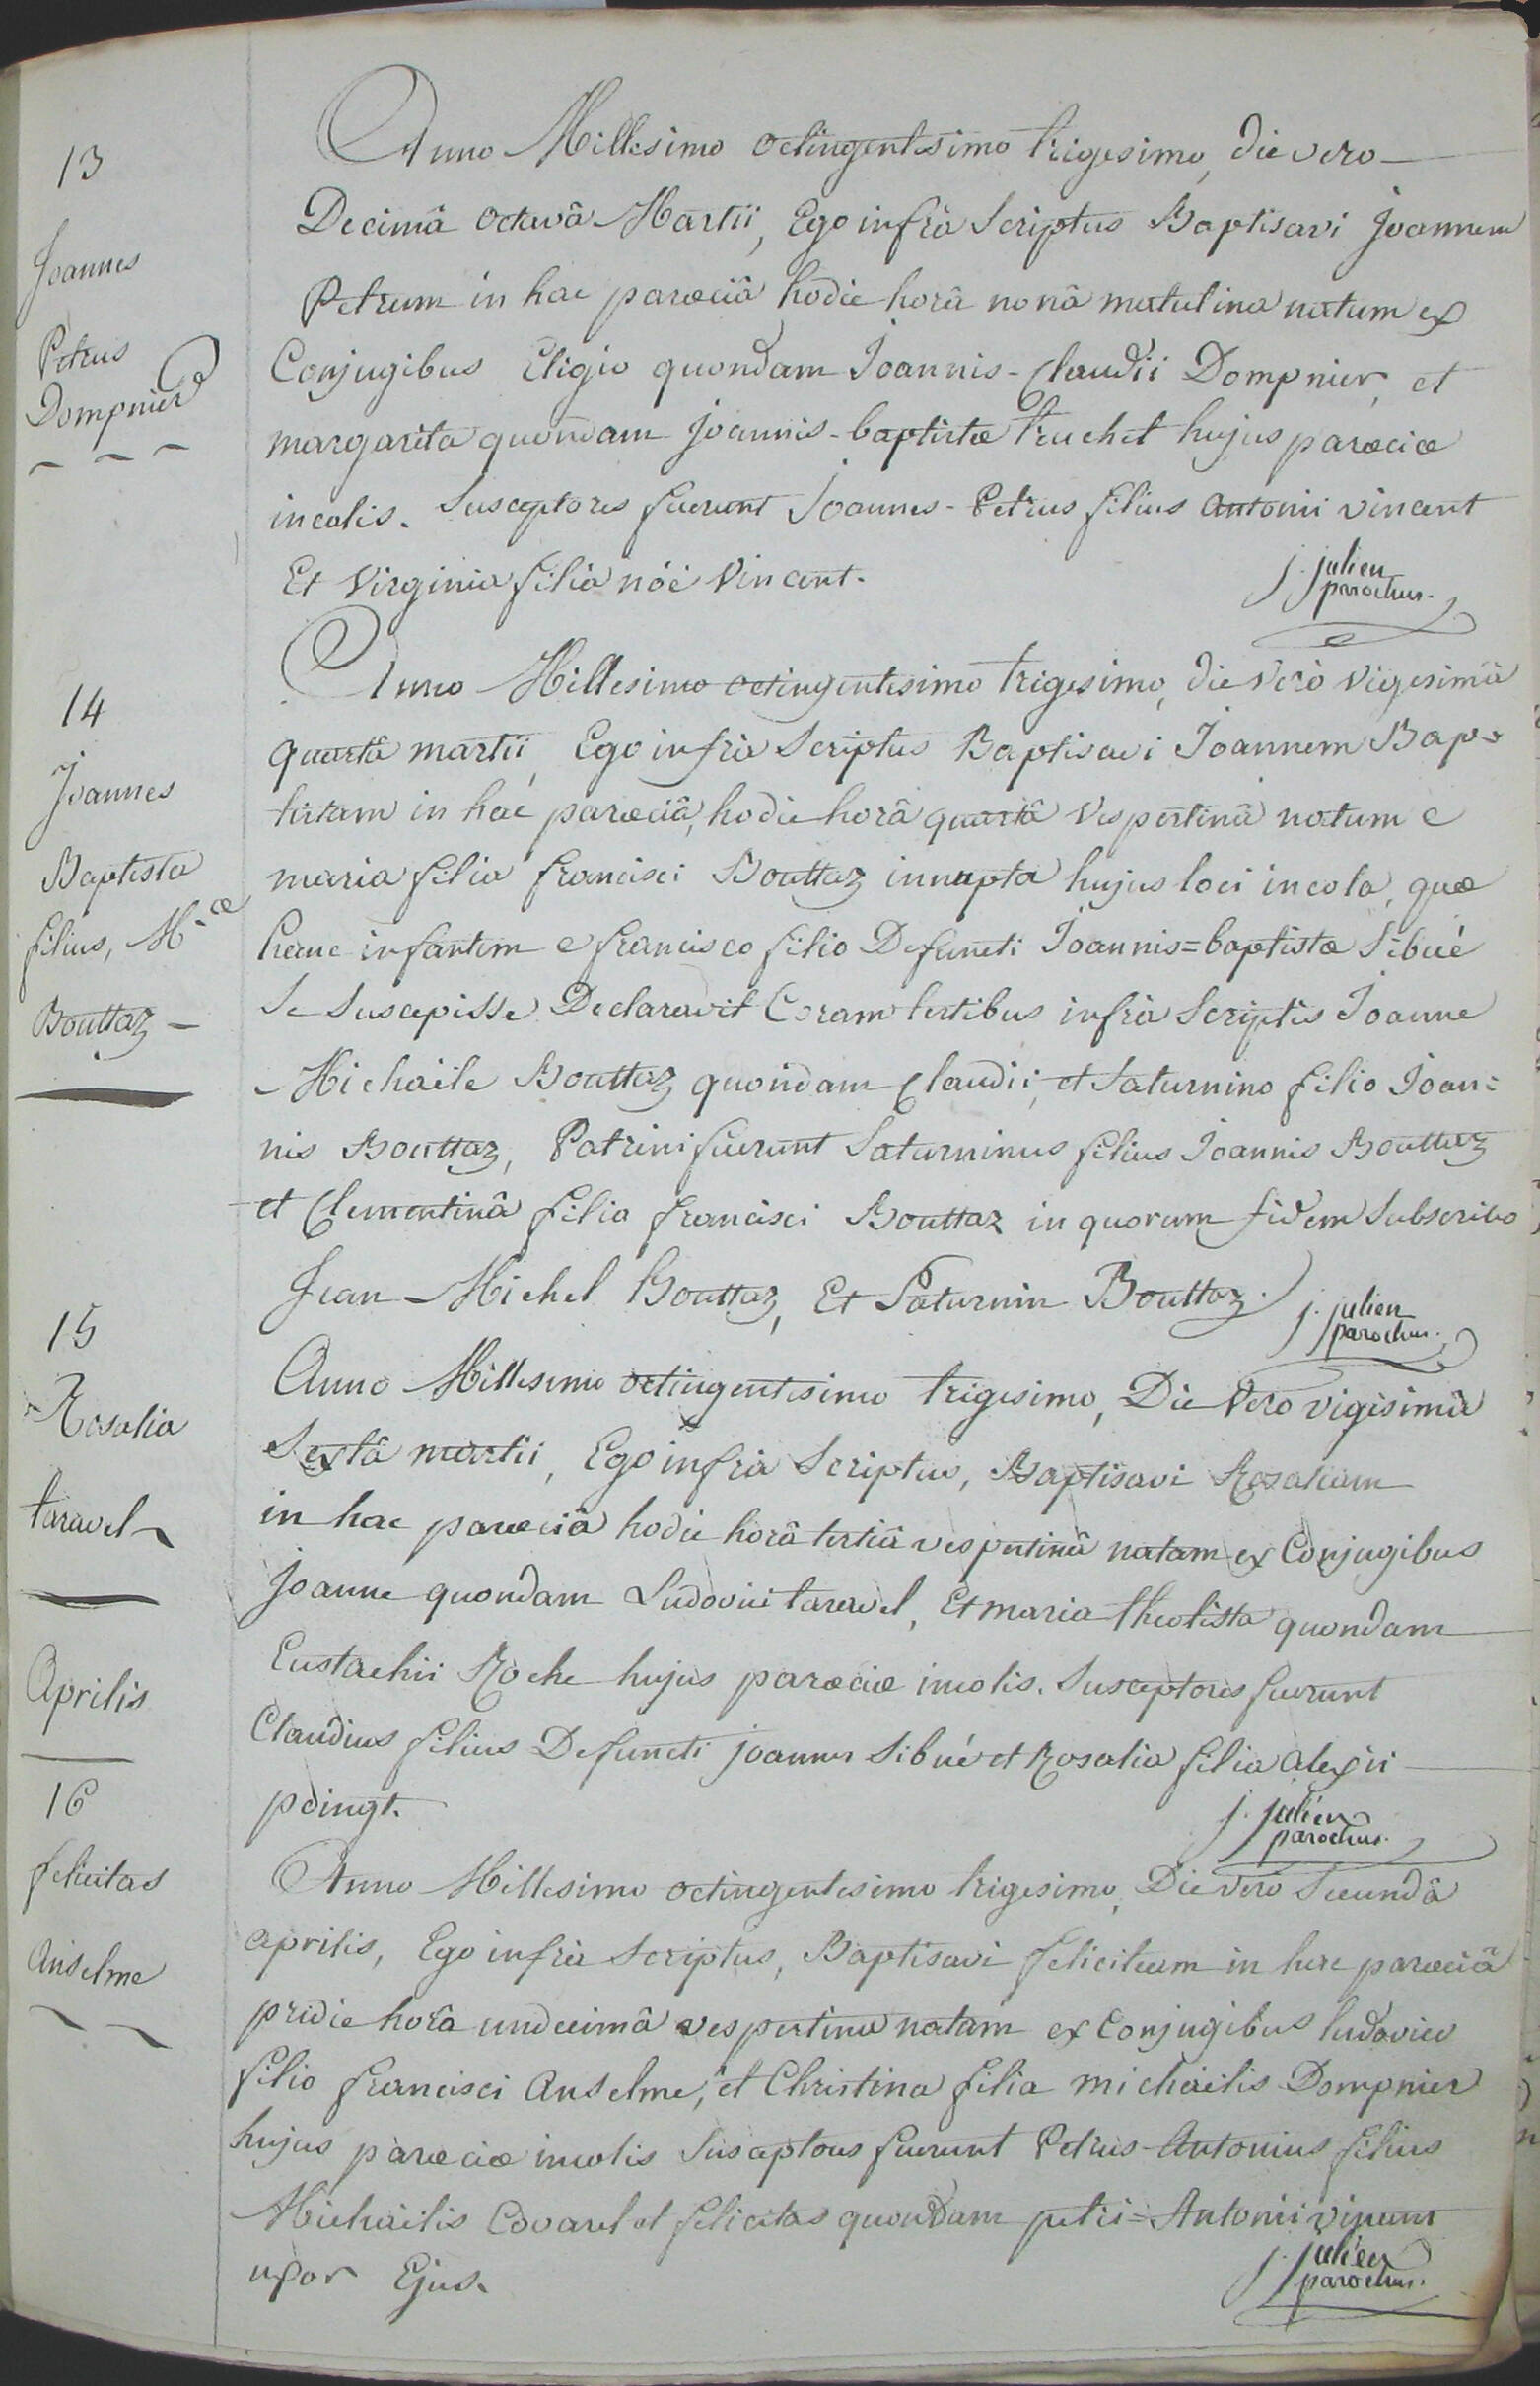 13
Joannes
Petrus
Dompnier
Anno Millesimo octingentesimo trigesimo, die vero
Decimâ octavâ Martii, Ego infrà Scriptus Baptisavi Joannem
Petrum in hac parœciâ hodie horâ nonâ matutina natum ex
Conjugibus Eligio quondam Joannis-Claudii Dompnier, et
margarita quondam Joannis-baptistæ truchet hujus parœciæ
incolis. Susceptores fuerunt Joannes-Petrus filius antonii vincent
Et Virginia filia nöé Vincent.
j. julien
parochus.
14
Joannes
Baptista
filius, M.æ
Bouttaz
Anno Millesimo octingentesimo trigesimo, die vero vigesimâ
quartâ martii, Ego infrà Scriptus Baptisavi Joannem Bap=
tistam in hac parœciâ, hodie horâ quartâ Vespertinâ natum e
maria filia francisci Bouttaz innupta hujus loci incola, quæ
hunc infantem e francisco filio Defuncti Joannis=baptistæ Sibué
Se Suscepisse Declaravit Coram testibus infrà Scriptis Joanne
Michaële Bouttaz quondam Claudii, et Saturnino filio Joan=
nis Bouttaz, Patrini fuerunt Saturninus filius Joannis Bouttaz
et Clementinâ filia francisci Bouttaz in quorum fidem Subscribo
Jean Michel Bouttaz, Et Saturnin Bouttaz.
j. julien
parochus.
15
Rosalia
taravel
Anno Millesimo octingentesimo trigesimo, Die Vero vigisimâ
Sextâ martii, Ego infrà Scriptus, Baptisavi Rosaliam
in hac parœciâ hodie horâ tertiâ vespertinâ natam ex Conjugibus
Joanne quondam Ludovici taravel, Et maria theolista quondam
Eustachii Roche hujus parœciæ incolis. Susceptores fuerunt
Claudius filius Defuncti joannis Sibué et Rosalia filia alexii
poingt.
j. julien
parochus.
Aprilis
16
felicitas
Anselme
Anno Millesimo octingentesimo trigesimo, Die vero Secundâ
aprilis, Ego infrà Scriptus, Baptisavi felicitam in hac parœciâ
pridie horâ undecimâ vespertina natam ex Conjugibus ludovico
filio francisci Anselme, et Christina filia michaëlis Dompnier
hujus parœciæ incolis Susceptores fuerunt Petrus-Antonius filius
Michaëlis Covarel et felicitas quondam petri=Antonii
uxor Ejus.
j. julien
parochus.